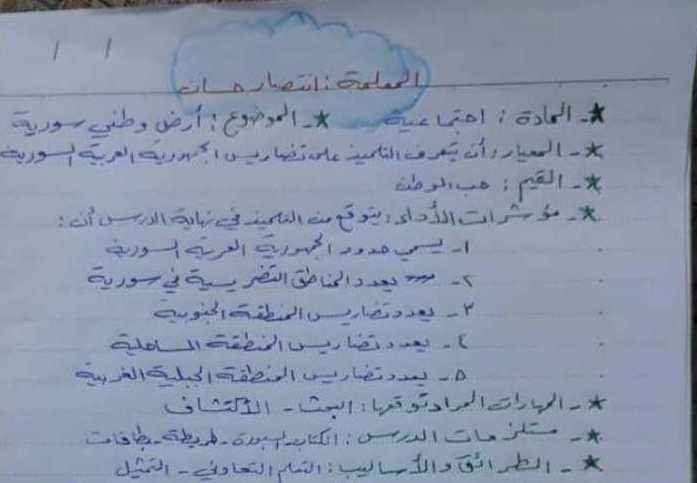 المعلمة: انتصار حسان
* - المادة: اجتماعية * - الموضوع: أرض وطني سورية
* - المعيار: أن يتعرف التلميذ على تضاريس الجمهورية العربية السورية
* - القيم: حب الوطن
* - مؤشرات الأداء: يتوقع من التلميذ في نهاية الدرس أن:
١- يسمي حدود الجمهورية العربية السورية
٢- يعدد المناطق التضريسية في سورية
٣- يعدد تضاريس المنطقة الجنوبية
٤- يعدد تضاريس المنطقة الساحلية
٥- يعدد تضاريس المنطقة الجبلية الغربية
* - المهارات المراد توقعها: البحث - الأكتشاف
* - مستلزمات الدرس: الكتاب - السبورة - خريطة - بطاقات
* - الطرائق والأساليب: التعلم التعاوني - التمثيل